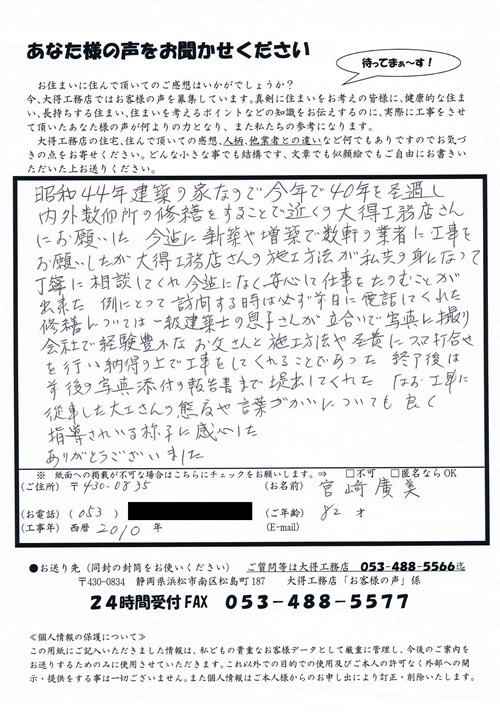 あなた様の声をお聞かせください
待ってまぁ～す！
お住まいに住んで頂いてのご感想はいかがでしょうか？
今、大得工務店ではお客様の声を募集しています。真剣に住まいをお考えの皆様に、健康的な住ま
い、長持ちする住まい、住まいを考えるポイントなどの知識をお伝えするのに、実際に工事をさせ
て頂いたあなた様の声が何よりの力となり、また私たちの参考になります。
大得工務店の住宅、住んで頂いての感想、人柄、他業者との違いなど何でもありですのでお気づ
きの点をお寄せください。どんな小さな事でも結構です、文章でも似顔絵でもご自由にお書きい
ただいた上お送りください。
昭和44年建築の家なので今年で40年を経過し
内外数個所の修繕をすることで近くの大得工務店さん
にお願いした 今迄に新築や増築で数軒の業者に工事を
お願いしたが大得工務店さんの施工方法が私共の身になって
丁寧に相談してくれ今迄になく安心して仕事をたのむことが
出来た 例にとって訪問する時は必ず前日に電話してくれた
修繕については一級建築士の息子さんが立合いで写真に撮り
会社で経験豊かなお父さんと施工方法や経費について打合せ
を行い納得の上で工事をしてくれることであった 終了後は
前後の写真添付の報告書まで提出してくれた なお工事に
従事した大工さんの態度や言葉づかいについても良く
指導されている様子に感心した
ありがとうございました
※ 紙面への掲載が不可な場合はこちらにチェックをお願いします。⇒ □不可 □匿名ならOK
(ご住所) 〒430-0835 (お名前) 宮崎廣美
(お電話) (053) (ご年齢) 82 才
(工事年) 西暦 2010 年 (E-mail)
●お送り先（同封の封筒をお使いください） ご質問等は大得工務店 053-488-5566迄
〒430-0834 静岡県浜松市南区松島町187 大得工務店「お客様の声」係
24時間受付FAX 053-488-5577
≪個人情報の保護について≫
この用紙にご記入いただきました情報は、私どもの貴重なお客様データとして厳重に管理し、今後のご案内を
お送りするためのみに使用させていただきます。これ以外での目的での使用及びご本人の許可なく外部への開
示・提供をする事は一切ございません。また個人情報はご本人様からのお申し出により訂正・削除いたします。